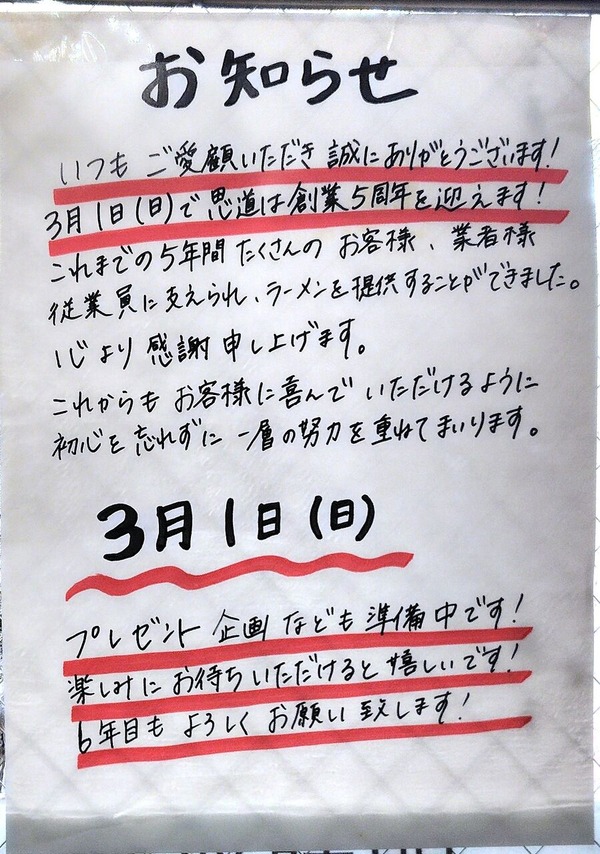 お知らせ
いつも ご愛顧いただき 誠にありがとうございます!
3月1日(日)で 思道は創業5周年を迎えます!
これまでの5年間 たくさんの お客様、業者様
従業員に支えられ、ラーメンを提供することができました。
心より 感謝申し上げます。
これからも お客様に喜んで いただけるように
初心を忘れずに 一層の努力を重ねてまいります。
3月1日(日)
プレゼント 企画なども 準備中です!
楽しみに お待ちいただけると 嬉しいです!
6年目も よろしく お願い 致します!